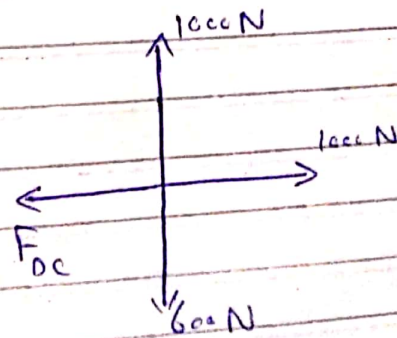 1000 N
1000 N
F_DC
600 N